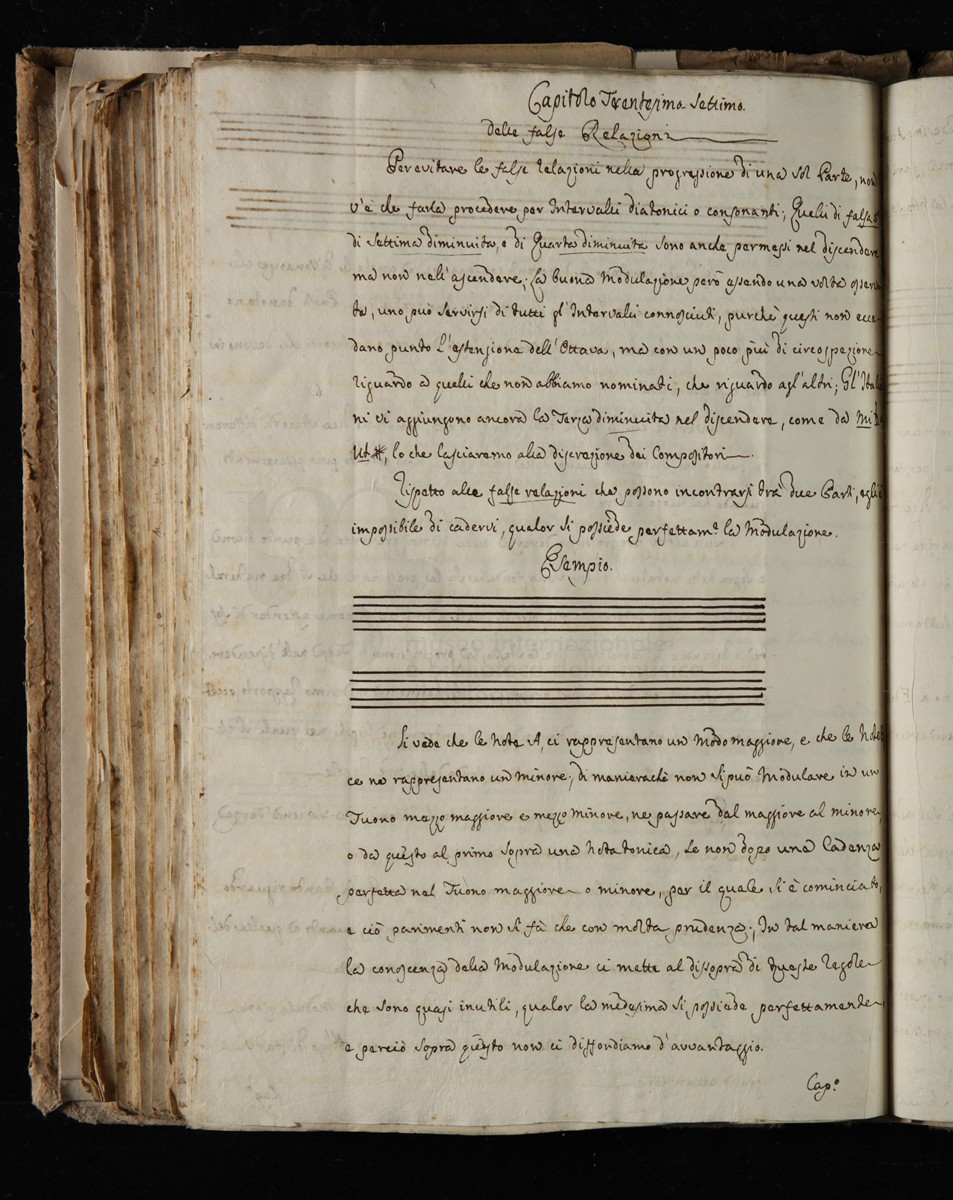 Capitolo Trentesimo Settimo.
delle false Relazioni
Per evitare le false relazioni nella progressione di una sol Parte, non
v'è che farla procedere per Intervalli diatonici o consonanti; Quelli di falsa 5
di Settima diminuita, e di Quarta diminuita sono anche permessi nel discendere
ma non nell'ascendere; La buona Modulazione però essendo una volta osserva
ta, uno può servirsi di tutti gl'Intervalli connosciuti, purchè questi non ecce
dano punto L'estenzione dell'Ottava, ma con un poco più di circospezione
riguardo a quelli che non abbiamo nominati, che riguardo agl'altri; Gl'Italia
ni vi aggiungono ancora la Terza diminuita nel discendere, come da Mi b
Ut #, lo che lasciaremo alla discrezione dei Compositori.
Rispetto alle false relazioni che possono incontrarsi trà due Parti, egli è
impossibile di cadervi, qualor si possiede perfettam.e la Modulazione.
Esempio.
Si vede che le Note A, ci rappresentano un Modo maggiore, e che le Note
ce ne rappresentano un minore; di manierachè non si può Modulare in un
Tuono mezzo maggiore e mezzo minore, ne passare dal maggiore al minore
o da questo al primo sopra una Nota tonica, se non dopo una Cadenza
perfetta nel Tuono maggiore o minore, per il quale si è cominciato,
e ciò parimenti non si fà che con molta prudenza; In tal maniera
la conoscenza della Modulazione ci mette al dissopra di queste regole
che sono quasi inutili, qualor la medesima si possiede perfettamente
e perciò sopra questo non ci diffondiamo d'avvantaggio.
Cap.o